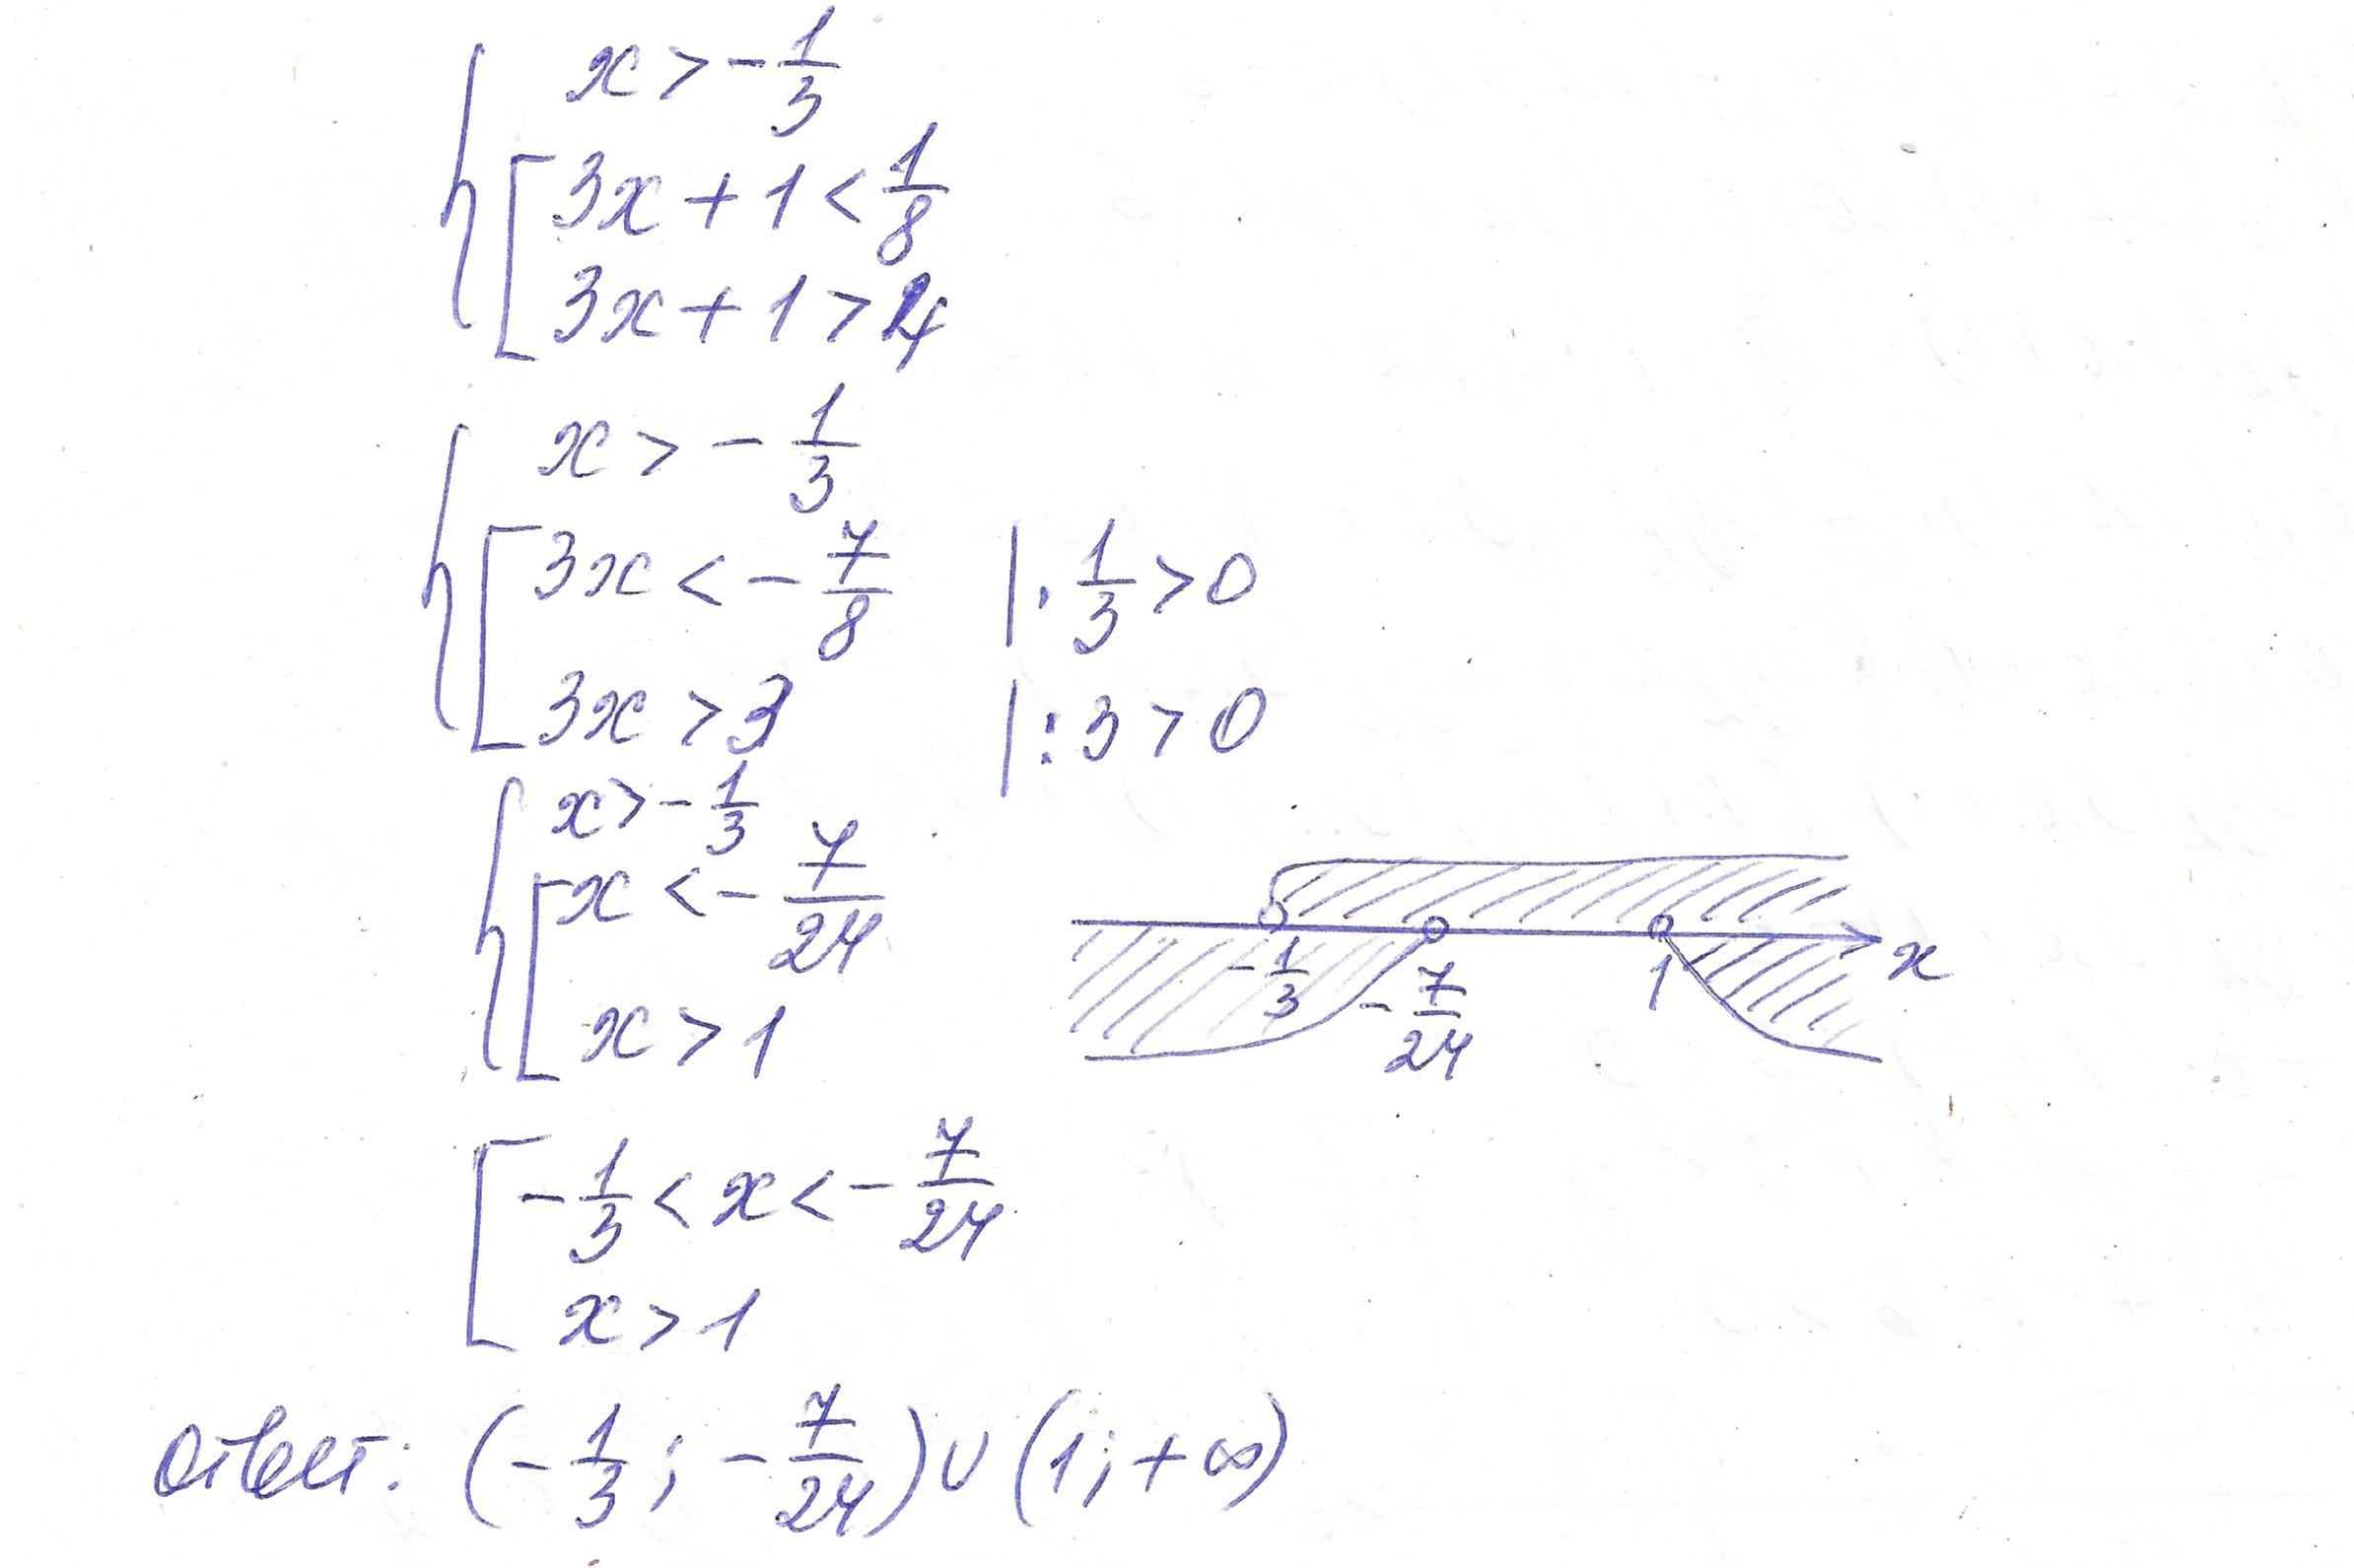 x > -1/3
3x + 1 < 1/8
3x + 1 > 4
x > -1/3
3x < -7/8 | · 1/3 > 0
3x > 3 | : 3 > 0
x > -1/3
x < -7/24
x > 1
-1/3 -7/24 1 x
-1/3 < x < -7/24
x > 1
Ответ: (-1/3; -7/24) ∪ (1; +∞)